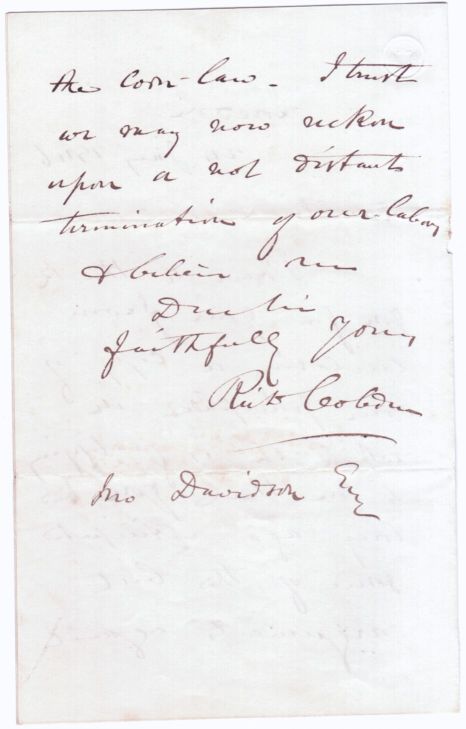 the Corn-law - I trust
we may now reckon
upon a not distant
termination of our labors
& believe me
Dear Sir
faithfully yours
Richd Cobden
Jno Davidson Esq